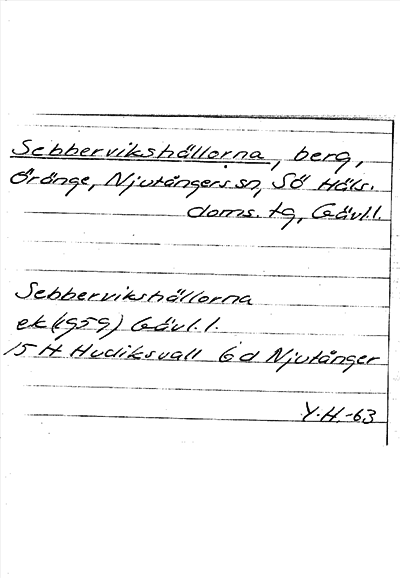 Sebbervikshällorna, berg,
Öränge, Njutångers sn, Sö Häls.
doms. tg, Gävl.l.
Sebbervikshällorna
ek (1959) Gävl.l.
15 H Hudiksvall 6d Njutånger
Y.H.-63